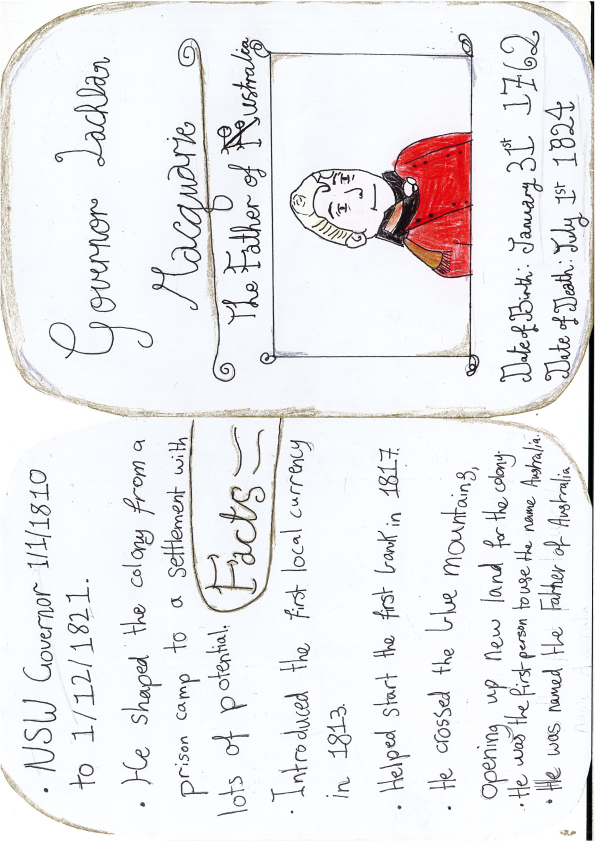 Governor Lachlan
Macquarie
The Father of Australia
Date of Birth: January 31st 1762
Date of Death: July 1st 1824
• NSW Governor 1/1/1810
to 1/12/1821.
• He shaped the colony from a
prison camp to a settlement with
lots of potential.
Facts
• Introduced the first local currency
in 1813.
• Helped start the first bank in 1817.
• He crossed the blue mountaing,
opening up new land for the colony.
• He was the first person to use the name Australia.
• He was named the Father of Australia